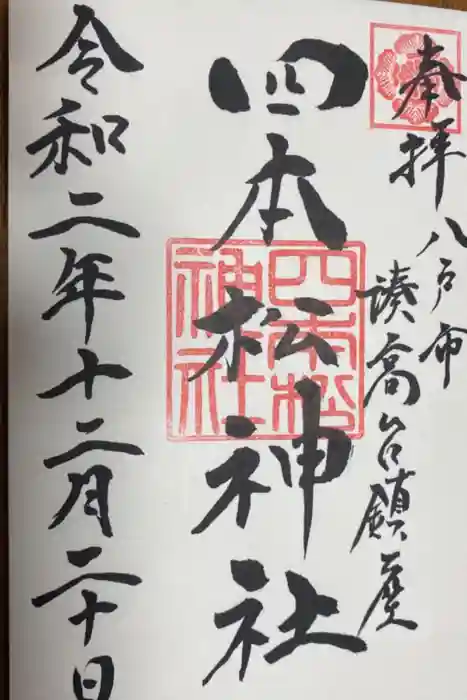 奉拝
八戸市
湊高台鎮座
四本松神社
四本松神社
令和二年十二月二十日